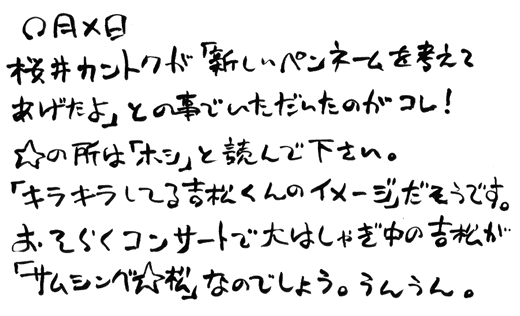 〇月×日
桜井カントクが「新しいペンネームを考えて
あげたよ」との事でいただいたのがコレ!
☆の所は「ホシ」と読んで下さい。
「キラキラしてる吉松くんのイメージ」だそうです。
おそらくコンサートで大はしゃぎ中の吉松が
「サムシング☆松」なのでしょう。うんうん。